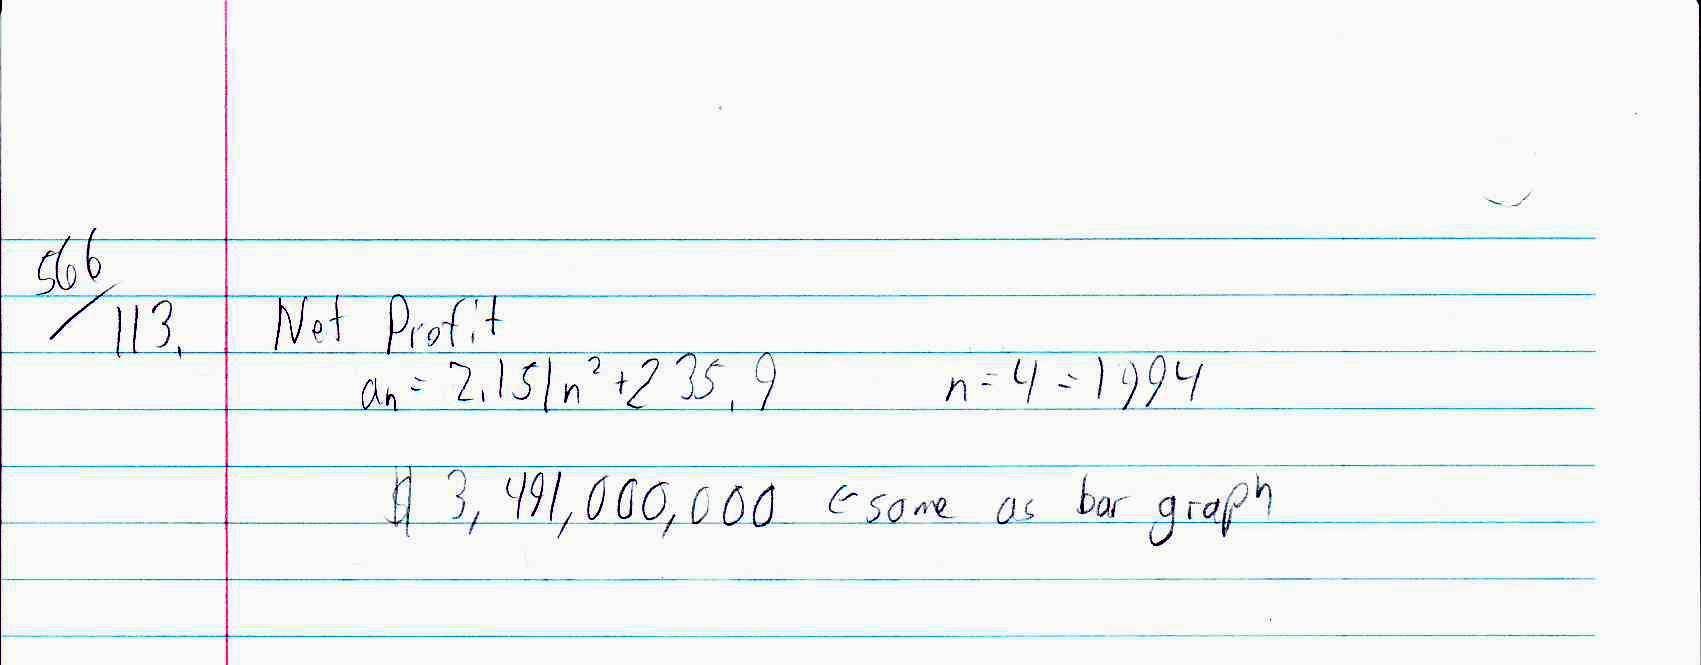 566
/113. Net Profit
an = 2.151n² + 235.9 n=4=1994
$ 3,491,000,000 ← same as bar graph